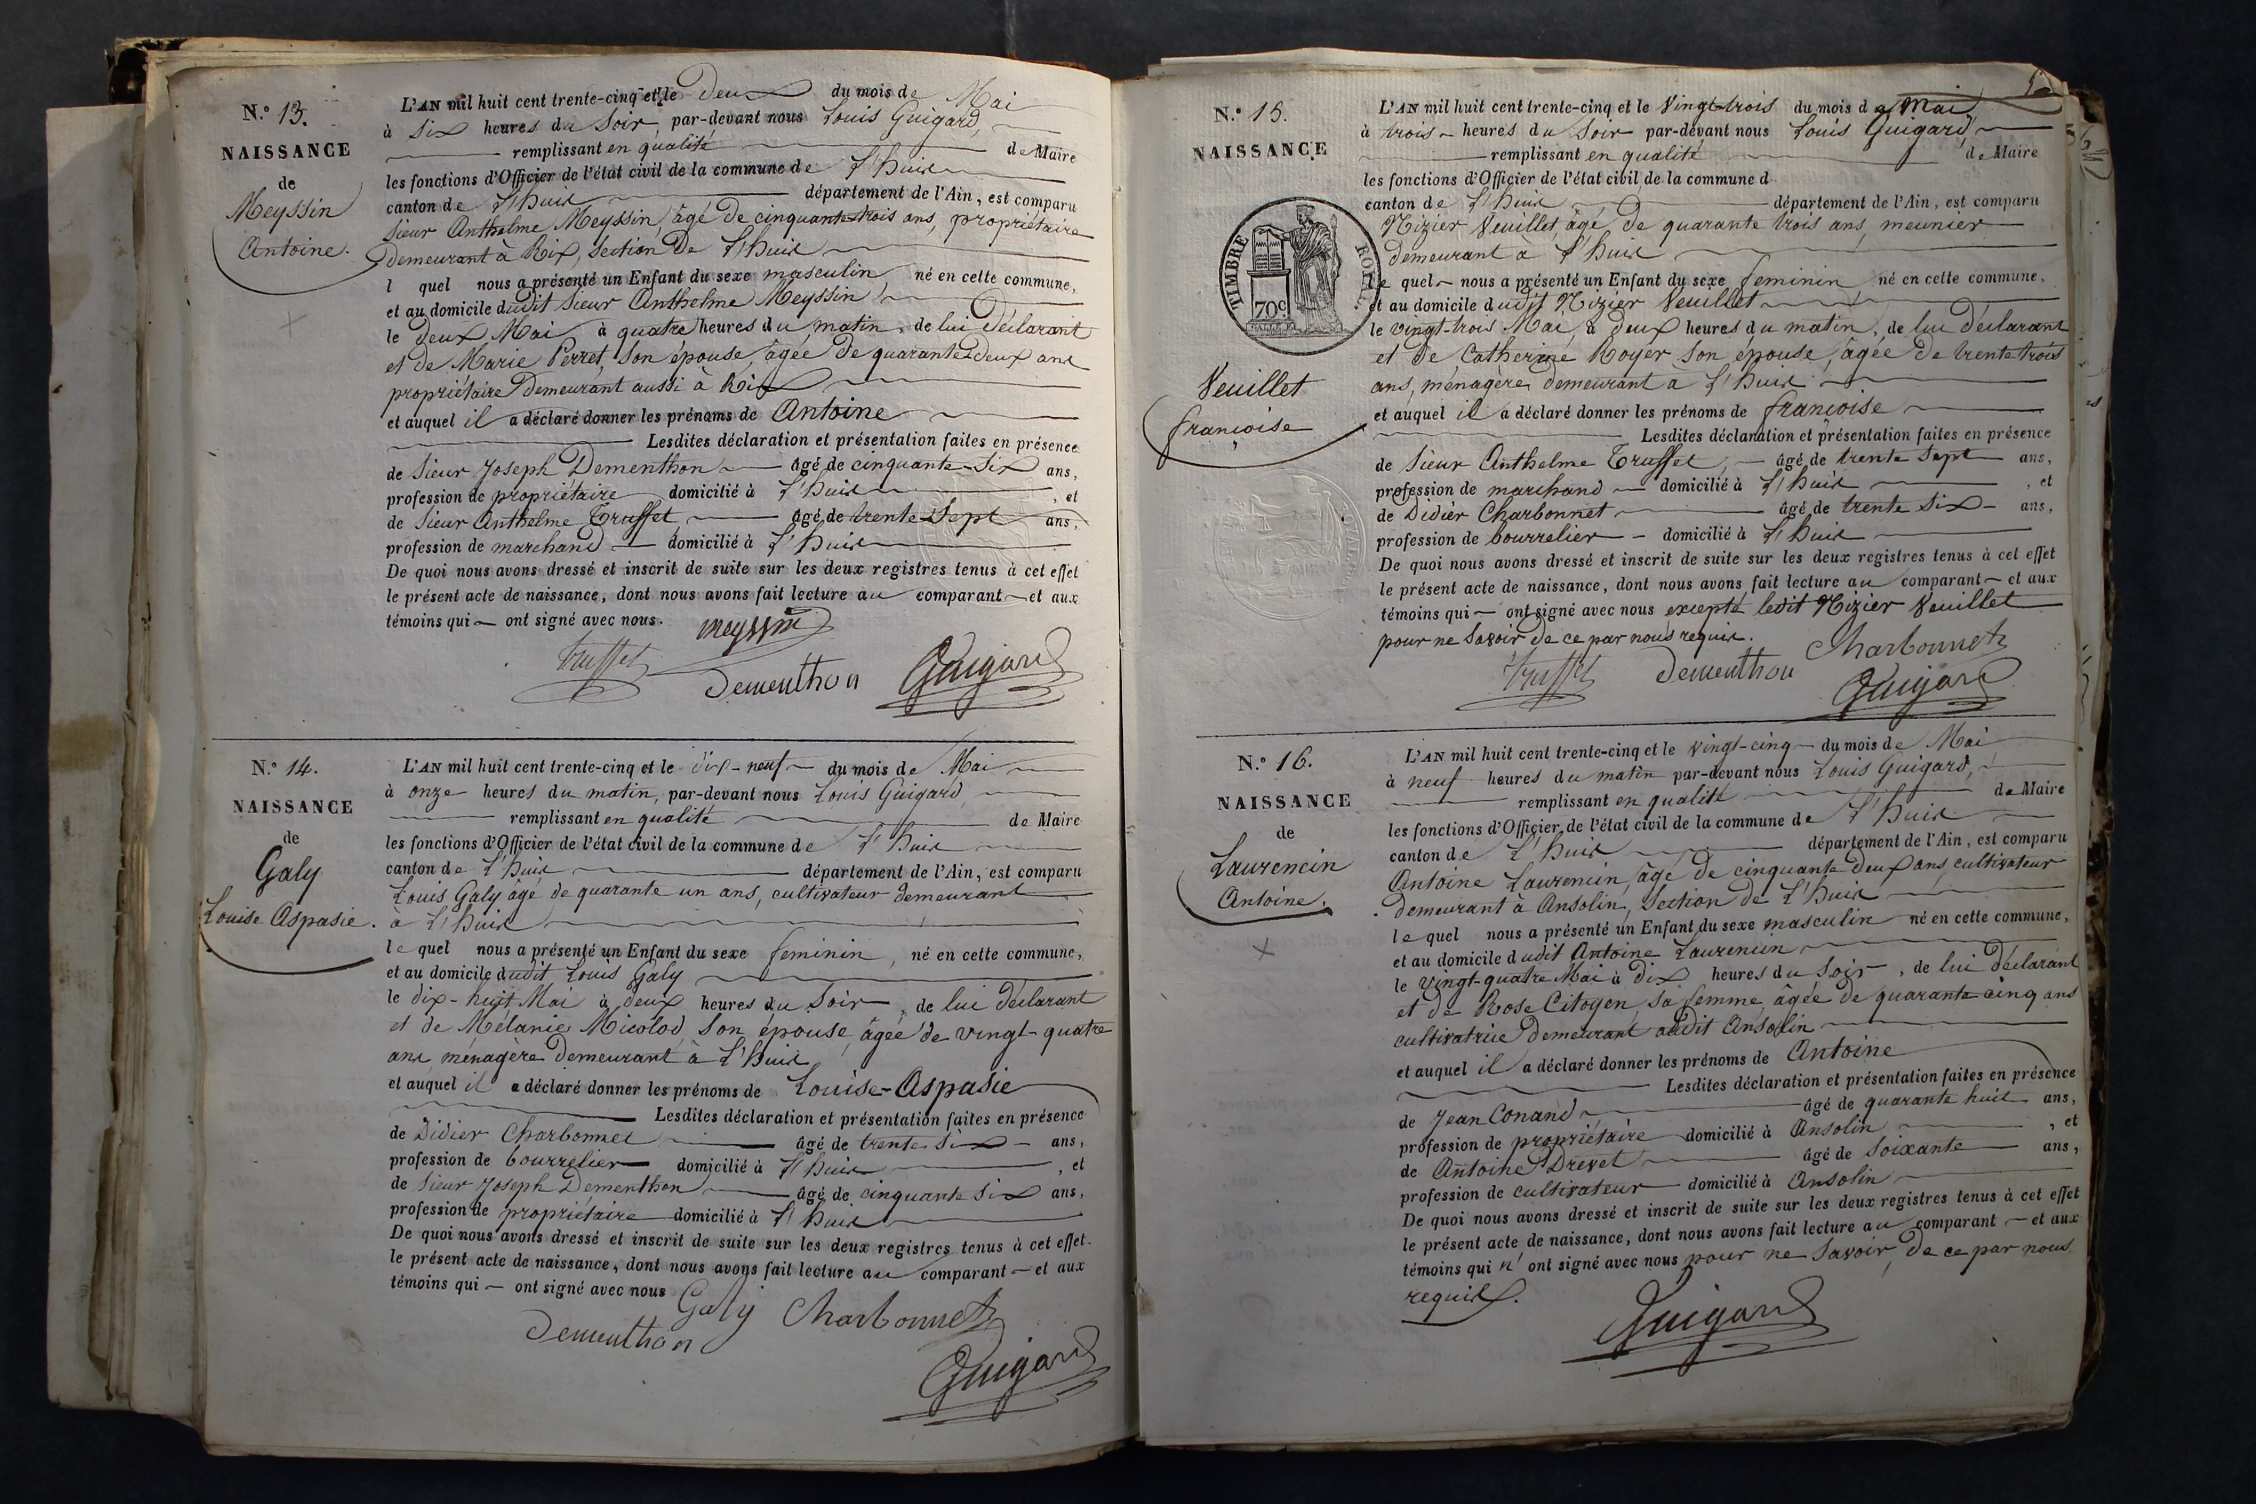 N.º 13.
NAISSANCE
de
Meyssin
Antoine.
L'AN mil huit cent trente-cinq et le Deux du mois de Mai
à Six heures du Soir, par-devant nous Louis Guigard,
remplissant en qualité de Maire
les fonctions d'Officier de l'état civil de la commune de L'huis
canton de L'huis département de l'Ain, est comparu
Sieur Anthelme Meyssin, âgé de cinquante-trois ans, propriétaire
demeurant à Rix, section de L'huis
l quel nous a présenté un Enfant du sexe masculin né en cette commune,
et au domicile dudit Sieur Anthelme Meyssin
le deux Mai à quatre heures du matin, de lui Déclarant
et de Marie Perret, son épouse, âgée de quarante-deux ans
propriétaire demeurant aussi à Rix
et auquel il a déclaré donner les prénoms de Antoine
Lesdites déclaration et présentation faites en présence
de Sieur Joseph Dementhon âgé de cinquante-Six ans,
profession de propriétaire domicilié à L'huis, et
de Sieur Anthelme Truffet, âgé de trente-Sept ans,
profession de marchand domicilié à L'huis
De quoi nous avons dressé et inscrit de suite sur les deux registres tenus à cet effet
le présent acte de naissance, dont nous avons fait lecture au comparant et aux
témoins qui ont signé avec nous.
meyssin
Truffet
Dementhon
Guigard
N.º 14.
NAISSANCE
de
Galy
Louise Aspasie.
L'AN mil huit cent trente-cinq et le dix-neuf du mois de Mai
à onze heures du matin, par-devant nous Louis Guigard,
remplissant en qualité de Maire
les fonctions d'Officier de l'état civil de la commune de L'huis
canton de L'huis département de l'Ain, est comparu
Louis Galy âgé de quarante un ans, cultivateur demeurant
à L'huis
le quel nous a présenté un Enfant du sexe feminin, né en cette commune,
et au domicile dudit Louis Galy
le dix-huit Mai à deux heures du Soir, de lui déclarant
et de Mélanie Micolod, son épouse, âgée de vingt-quatre
ans, ménagère demeurant à L'huis
et auquel il a déclaré donner les prénoms de Louise-Aspasie
Lesdites déclaration et présentation faites en présence
de Didier Charbonnet âgé de trente-six ans,
profession de bourrelier domicilié à L'huis, et
de Sieur Joseph Dementhon âgé de cinquante Six ans,
profession de propriétaire domicilié à L'huis
De quoi nous avons dressé et inscrit de suite sur les deux registres tenus à cet effet
le présent acte de naissance, dont nous avons fait lecture au comparant et aux
témoins qui ont signé avec nous
Galy Charbonnet
Dementhon
Guigard
N.º 15.
NAISSANCE
TIMBRE ROYAL
70c
Veuillet
françoise
L'AN mil huit cent trente-cinq et le Vingt-trois du mois de Mai
à trois heures du Soir par-devant nous Louis Guigard,
remplissant en qualité de Maire
les fonctions d'Officier de l'état civil de la commune d
canton de L'huis département de l'Ain, est comparu
Nizier Veuillet, âgé de quarante trois ans, meunier
demeurant à L'huis
le quel nous a présenté un Enfant du sexe feminin né en cette commune,
et au domicile dudit Nizier Veuillet
le vingt-trois Mai, à deux heures du matin, de lui déclarant
et de Catherine Royer son épouse, âgée de trente trois
ans, ménagère demeurant à L'huis
et auquel il a déclaré donner les prénoms de françoise
Lesdites déclaration et présentation faites en présence
de Sieur Anthelme Truffet, âgé de trente Sept ans,
profession de marchand domicilié à L'huis, et
de Didier Charbonnet âgé de trente Six ans,
profession de bourrelier domicilié à L'huis
De quoi nous avons dressé et inscrit de suite sur les deux registres tenus à cet effet
le présent acte de naissance, dont nous avons fait lecture au comparant et aux
témoins qui ont signé avec nous excepté ledit Nizier Veuillet
pour ne Savoir de ce par nous requis.
Charbonnet
Truffet Dementhon
Guigard
N.º 16.
NAISSANCE
de
Laurencin
Antoine.
L'AN mil huit cent trente-cinq et le vingt-cinq du mois de Mai
à neuf heures du matin par-devant nous Louis Guigard,
remplissant en qualité de Maire
les fonctions d'Officier de l'état civil de la commune de L'huis
canton de L'huis département de l'Ain, est comparu
Antoine Laurencin, âgé de cinquante deux ans, cultivateur
demeurant à Ansolin, Section de L'huis
le quel nous a présenté un Enfant du sexe masculin né en cette commune,
et au domicile dudit Antoine Laurencin
le vingt-quatre Mai à dix heures du Soir, de lui déclarant
et de Rose Citoyen, sa femme, âgée de quarante cinq ans
cultivatrice demeurant audit Ansolin
et auquel il a déclaré donner les prénoms de Antoine
Lesdites déclaration et présentation faites en présence
de Jean Conand âgé de quarante huit ans,
profession de propriétaire domicilié à Ansolin, et
de Antoine Drevet âgé de Soixante ans,
profession de cultivateur domicilié à Ansolin
De quoi nous avons dressé et inscrit de suite sur les deux registres tenus à cet effet
le présent acte de naissance, dont nous avons fait lecture au comparant et aux
témoins qui n'ont signé avec nous pour ne Savoir, de ce par nous
requis.
Guigard